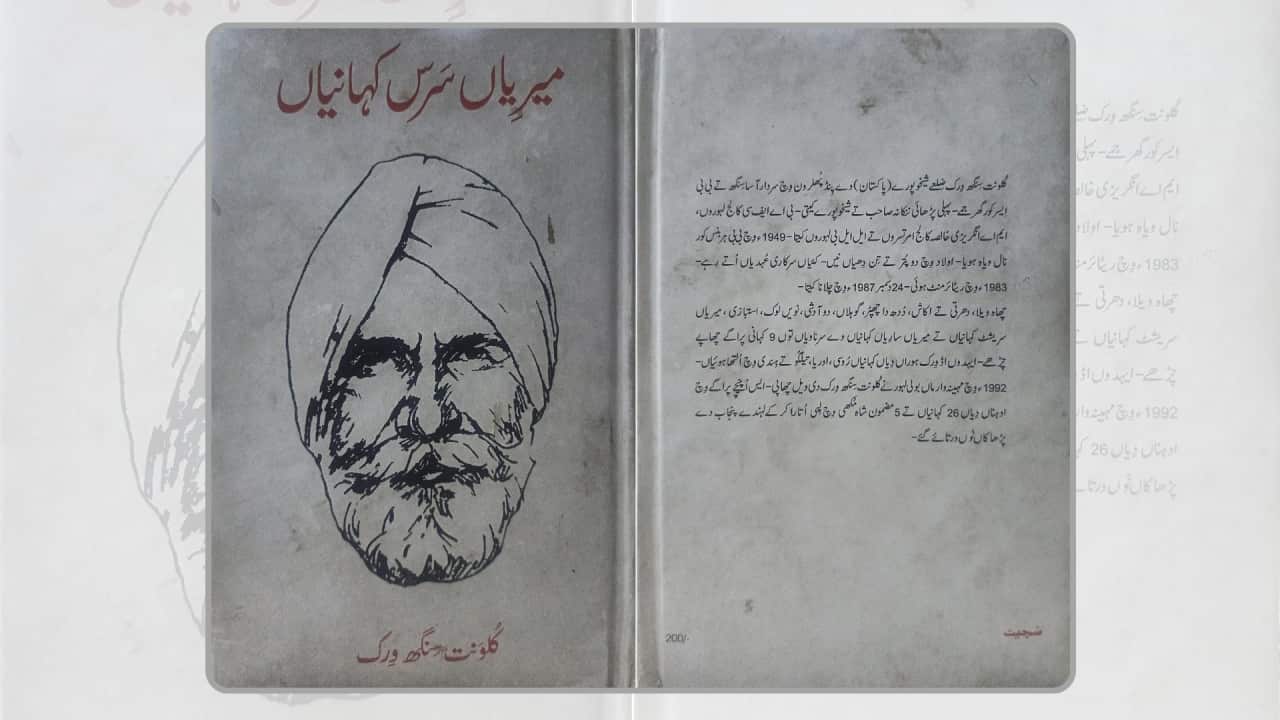 میرِیاں سَرس کہانیاں
کُلوَنت سِنگھ وِرک
کُلونت سِنگھ وِرک ضلعے شیخوپورے (پاکستان) دے پِنڈ پُھلرون وِچ سردار آسا سِنگھ تے بی بی
ایسر کور گھر جمے- پہلی پڑھائی ننکانہ صاحب تے شیخوپورے کیتی- بی اے ایف سی کالج لہوروں،
ایم اے انگریزی خالصہ کالج امرتسروں تے ایل ایل بی لہوروں کیتا- 1949ء وِچ بی بی ہربنس کور
نال ویاہ ہویا- اولاد وِچ دو پُتر تے تِن دِھیاں نیں- کئیاں سرکاری عُہدیاں اُتے رہے-
1983ء وِچ ریٹائرمنٹ ہوئی- 24 دسمبر 1987ء وِچ چلانا کیتا-
چھاہ ویلا، دھرتی تے اکاش، دُدھ دا چھپڑ، گوہلاں، دو آدشی، نویں لوک، استبازی، میریاں
سریشٹ کہانیاں تے میریاں ساریاں کہانیاں دے سرناویاں توں 9 کہانی پراگے چھاپے
چڑھے- ایہدوں اڈ وِرک ہوراں دِیاں کہانیاں رُوسی، اوریا، تیلگو تے ہِندی وِچ اُلتھا ہوئیاں-
1992ء وِچ مہینہ وار ماں بولی لہور نے کُلونت سِنگھ وِرک دی ویل چھاپی- ایس اُچیچے پراگے وِچ
اوہناں دِیاں 26 کہانیاں تے 5 مضمون شاہ مُکھی وِچ لِپی اُتارا کر کے لہندے پنجاب دے
پڑھاکاں نُوں ورتائے گئے-
200/-
سُجیت